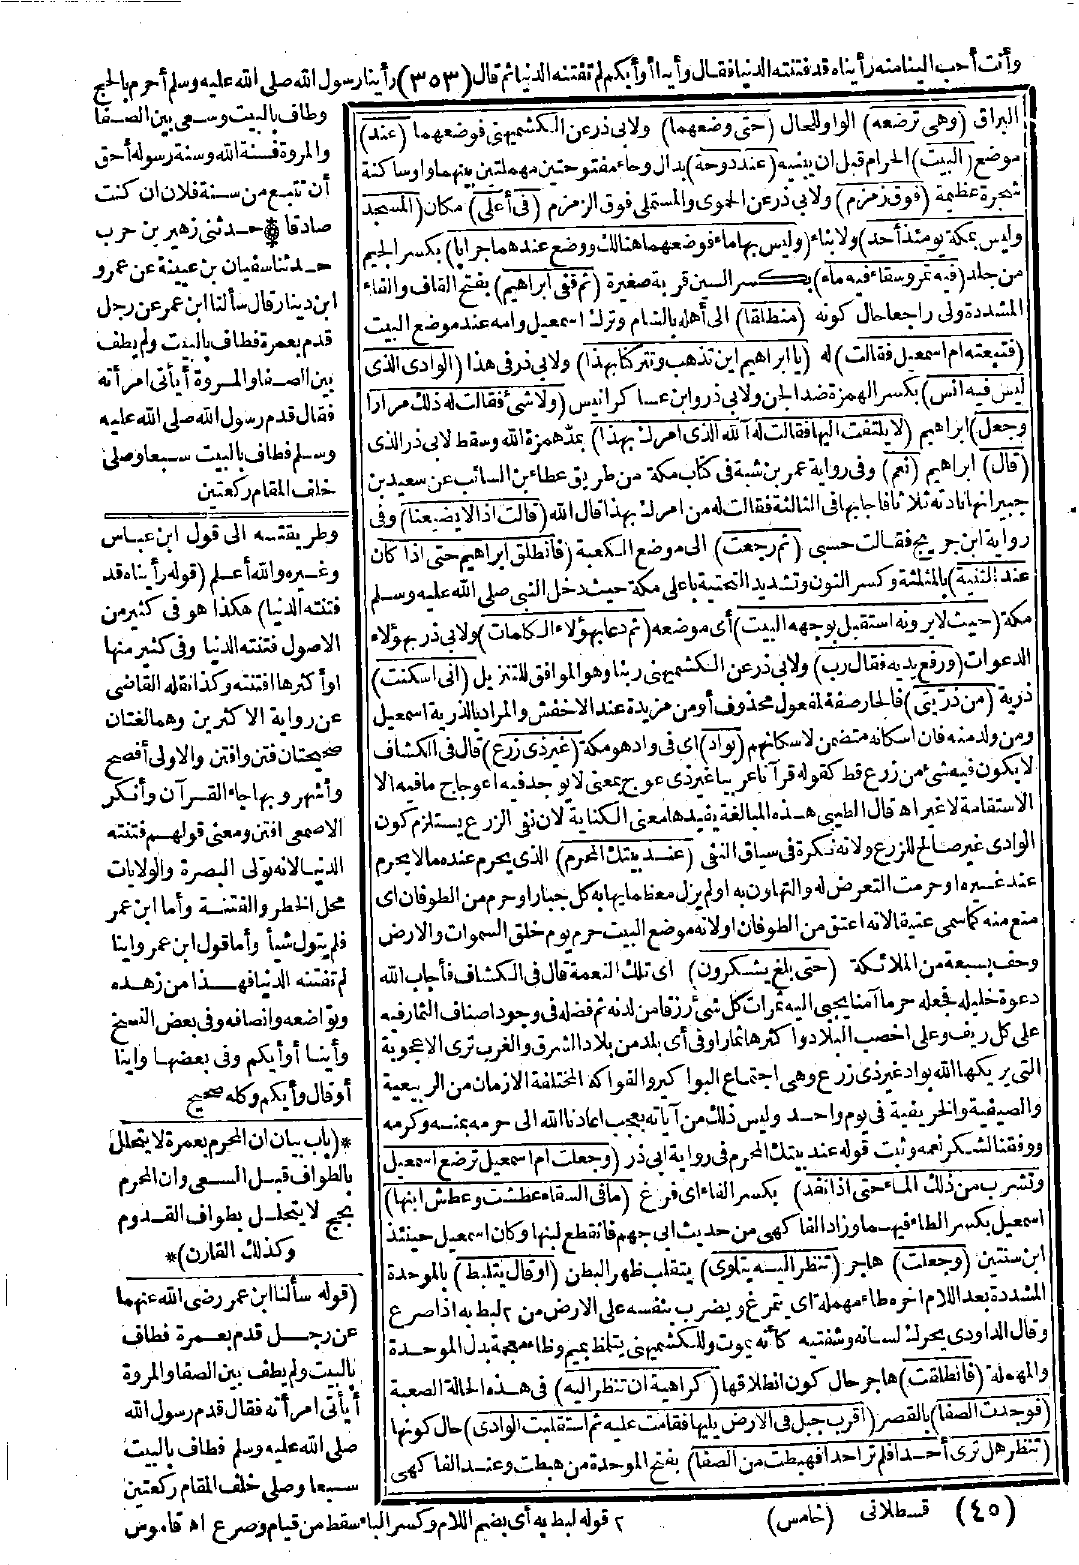 وأنت أحب الينا منه رأيناه قد فتنته الدنيا فقال وأينا أو أيكم لم تفتنه الدنيا ثم قال (٣٥٣) رأينا رسول الله صلى الله عليه وسلم أحرم بالحج
البراق (وهي ترضعه) الواو للحال (حتى وضعهما) ولابي ذر عن الكشميهني فوضعهما (عند)
موضع (البيت) الحرام قبل ان يبنيه (عند دوحة) بدال وحاء مفتوحتين مهملتين بينهما واو ساكنة
شجرة عظيمة (فوق زمزم) ولابي ذر عن الحموى والمستملى فوق الزمزم (في أعلى) مكان (المسجد
وليس بمكة يومئذ أحد) ولا بناء (وليس بها ماء فوضعهما هنالك ووضع عندهما جرابا) بكسر الجيم
من جلد (فيه تمر وسقاء فيه ماء) بكسر السين قربة صغيرة (ثم قفى ابراهيم) بفتح القاف والفاء
المشددة ولى راجعا حال كونه (منطلقا) الى أهله بالشام وترك اسمعيل وامه عند موضع البيت
(فتبعته ام اسمعيل فقالت) له (يا ابراهيم اين تذهب وتتركنا بهذا) ولابي ذر في هذا (الوادى الذى
ليس فيه انس) بكسر الهمزة ضد الجن ولابي ذر وابن عساكر انيس (ولا شئ فقالت له ذلك مرارا
وجعل) ابراهيم (لا يلتفت اليها فقالت له آلله الذى امرك بهذا) بمد همزة الله وسقط لابي ذر الذى
(قال) ابراهيم (نعم) وفى رواية عمر بن شبة في كتاب مكة من طريق عطاء بن السائب عن سعيد بن
جبير انها نادته ثلاثا فاجابها في الثالثة فقالت له من امرك بهذا قال الله (قالت اذا لا يضيعنا) وفى
رواية ابن جريج فقالت حسبى (ثم رجعت) الى موضع الكعبة (فانطلق ابراهيم حتى اذا كان
عند الثنية) بالمثلثة وكسر النون وتشديد التحتية باعلى مكة حيث دخل النبي صلى الله عليه وسلم
مكة (حيث لا يرونه استقبل بوجهه البيت) أى موضعه (ثم دعا بهؤلاء الكلمات) ولابي ذر بهؤلاء
الدعوات (ورفع يديه فقال رب) ولابي ذر عن الكشميهني ربنا وهو الموافق للتنزيل (انى اسكنت)
ذرية (من ذريتى) فالجار صفة لمفعول محذوف أو من مزيدة عند الاخفش والمراد بالذرية اسمعيل
ومن ولد منه فان اسكانه متضمن لاسكانهم (بواد) اى فى واد هو مكة (غير ذى زرع) قال فى الكشاف
لا يكون فيه شئ من زرع قط كقوله قرآنا عربيا غير ذى عوج بمعنى لا يوجد فيه اعوجاج ما فيه الا
الاستقامة لا غير اه قال الطيبى هذه المبالغة يفيدها معنى الكناية لان نفى الزرع يستلزم كون
الوادى غير صالح للزرع ولانه نكرة في سياق النفى (عند بيتك المحرم) الذى يحرم عنده ما لا يحرم
عند غيره او حرمت التعرض له والتهاون به او لم يزل معظما يهابه كل جبار او حرم من الطوفان اى
منع منه كما سمى عتيقا لانه اعتق من الطوفان او لانه موضع البيت حرم يوم خلق السموات والارض
وحف بسبعة من الملائكة (حتى بلغ يشكرون) اى تلك النعمة قال فى الكشاف فأجاب الله
دعوة خليله فجعله حرما آمنا يجبى اليه ثمرات كل شئ رزقا من لدنه ثم فضله في وجود اصناف الثمار فيه
على كل ريف وعلى اخصب البلاد وأكثرها ثمارا وفى أى بلد من بلاد الشرق والغرب ترى الاعجوبة
التى يريكها الله بواد غير ذى زرع وهى اجتماع البواكير والفواكه المختلفة الازمان من الربيعية
والصيفية والخريفية في يوم واحد وليس ذلك من آياته بعجب اعادنا الله الى حرمه بمنه وكرمه
ووفقنا لشكر نعمه وثبت قوله عند بيتك المحرم فى رواية ابى ذر (وجعلت ام اسمعيل ترضع اسمعيل
وتشرب من ذلك الماء حتى اذا نفد) بكسر الفاء اى فرغ (ما فى السقاء عطشت وعطش ابنها)
اسمعيل بكسر الطاء فيهما وزاد الفاكهى من حديث ابى جهم فانقطع لبنها وكان اسمعيل حينئذ
ابن سنتين (وجعلت) هاجر (تنظر اليه يتلوى) يتقلب ظهر البطن (او قال يتلبط) بالموحدة
المشددة بعد اللام اخره طاء مهملة اى يتمرغ ويضرب بنفسه على الارض من ٢ لبط به اذا صرع
وقال الداودى يحرك لسانه وشفتيه كأنه يموت وللكشميهنى يتلمظ بميم وظاء معجمة بدل الموحدة
والمهملة (فانطلقت) هاجر حال كون انطلاقها (كراهية ان تنظر اليه) فى هذه الحالة الصعبة
(فوجدت الصفا) بالقصر (اقرب جبل فى الارض يليها فقامت عليه ثم استقبلت الوادى) حال كونها
(تنظر هل ترى أحدا فلم تر احدا فهبطت من الصفا) بفتح الموحدة من هبطت وعند الفاكهى
وطاف بالبيت وسعى بين الصفا
والمروة فسنة الله وسنة رسوله أحق
أن تتبع من سنة فلان ان كنت
صادقا * حدثنى زهير بن حرب
حدثنا سفيان بن عيينة عن عمرو
ابن دينار قال سألنا ابن عمر عن رجل
قدم بعمرة فطاف بالبيت ولم يطف
بين الصفا والمروة أيأتى امرأته
فقال قدم رسول الله صلى الله عليه
وسلم فطاف بالبيت سبعا وصلى
خلف المقام ركعتين
وطريقتسه الى قول ابن عباس
وغيره والله أعلم (قوله رأيناه قد
فتنته الدنيا) هكذا هو فى كثير من
الاصول فتنته الدنيا وفى كثير منها
أو أكثرها افتنته وكذا نقله القاضى
عن رواية الاكثرين وهما لغتان
صحيحتان فتن وافتن والاولى أفصح
وأشهر وبها جاء القرآن وأنكر
الاصمعى افتن ومعنى قولهم فتنته
الدنيا لانه تولى البصرة والولايات
محل الخطر والفتنة وأما ابن عمر
فلم يتول شيأ وأما قول ابن عمر وأينا
لم تفتنه الدنيا فهذا من زهده
وتواضعه وانصافه وفى بعض النسخ
وأينا أو أيكم وفى بعضها وأينا
أو قال وأيكم وكله صحيح
*(باب بيان ان المحرم بعمرة لا يتحلل
بالطواف قبل السعى وان المحرم
بحج لا يتحلل بطواف القدوم
وكذلك القارن)*
(قوله سألنا ابن عمر رضى الله عنهما
عن رجل قدم بعمرة فطاف
بالبيت ولم يطف بين الصفا والمروة
أيأتى امرأته فقال قدم رسول الله
صلى الله عليه وسلم فطاف بالبيت
سبعا وصلى خلف المقام ركعتين
(٤٥) قسطلانى (خامس)
٢ قوله لبط به أى بضم اللام وكسر الباء سقط من قيام وصرع اه قاموس